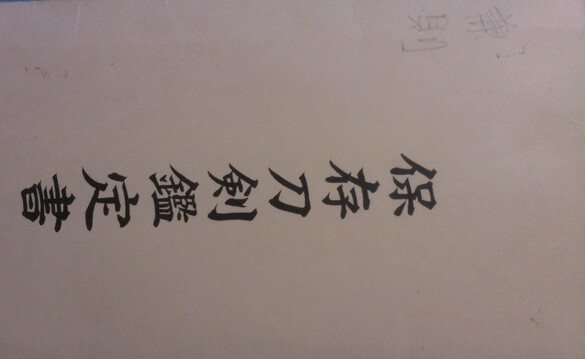 保存刀剣鑑定書
兼則